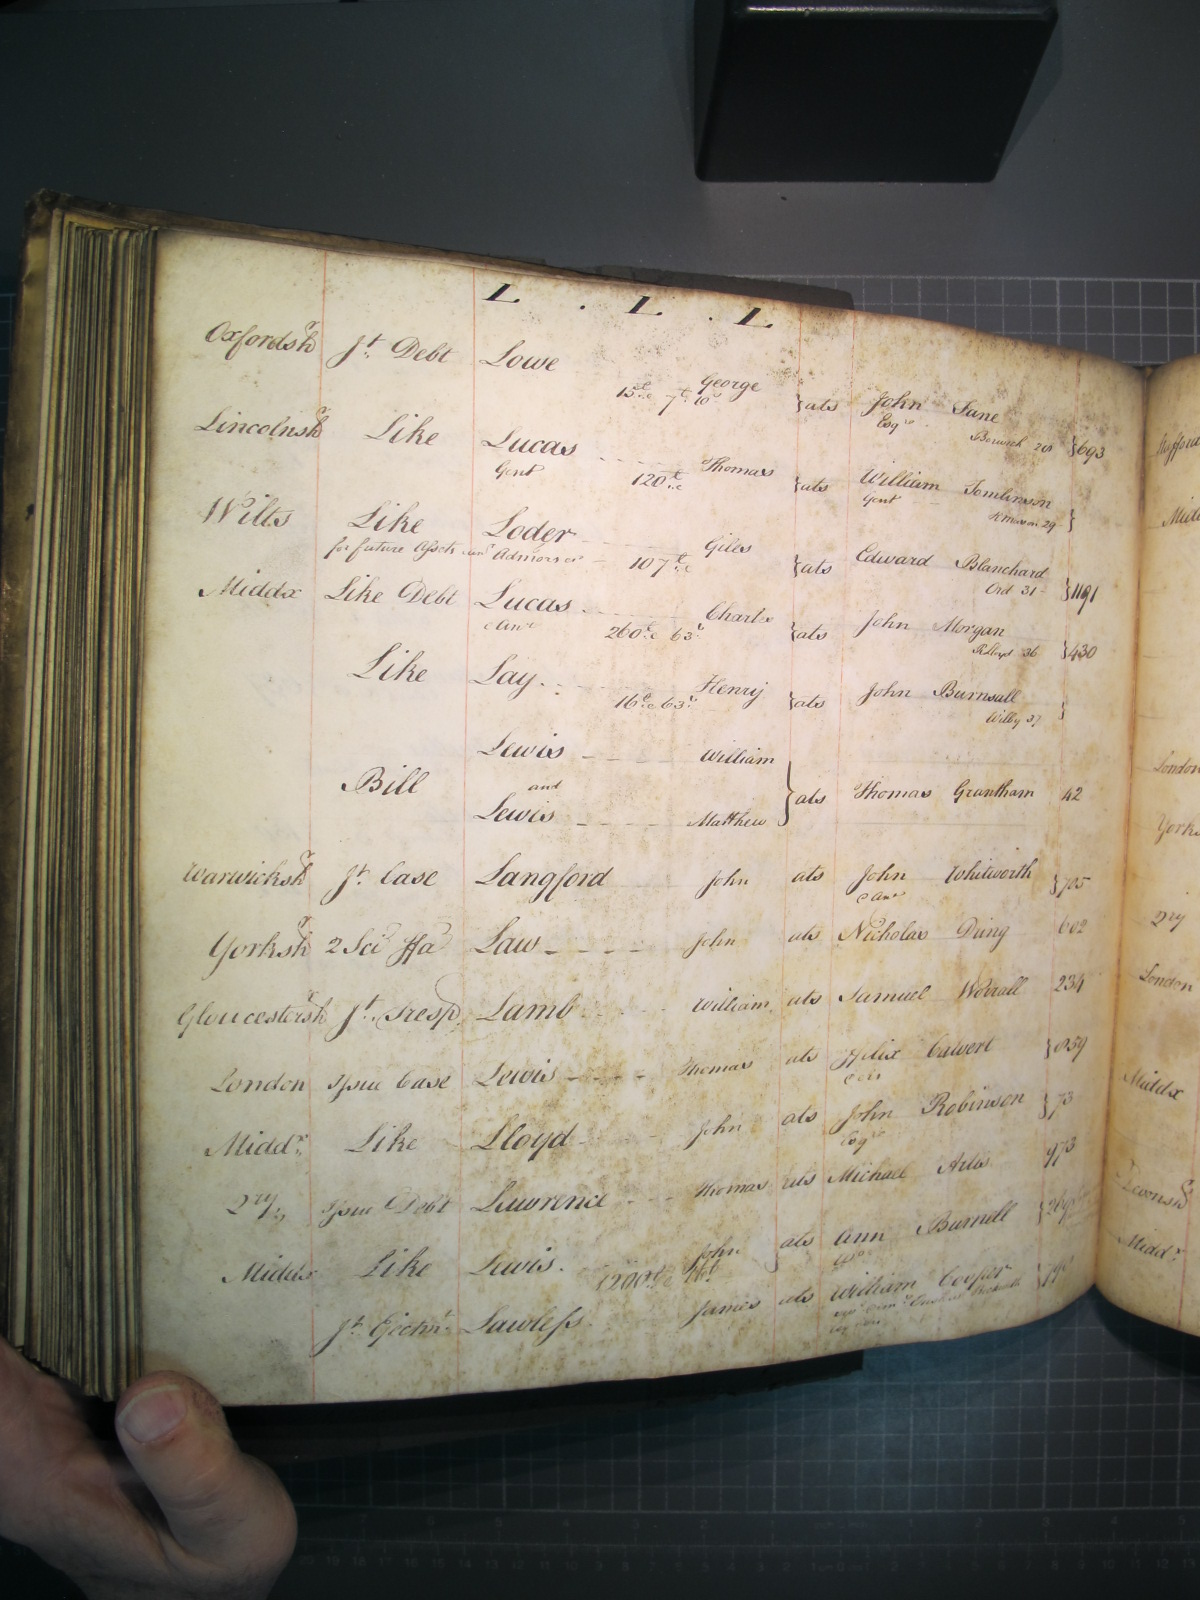 L . L . L
Oxfordshr Jt. Debt Lowe George } ats John Lane } 693
15 7 10s Esqr
Lincolnshr Like Lucas Thomas } ats William Tomlinson }
Gent 120 Gent 29
Wilts Like Loder Giles } ats Edward Blanchard } 1191
for future Assets Admors 107 Ord 31
Middx Like Debt Lucas Charles } ats John Morgan } 430
260 63s 36
Like Lay Henry } ats John Burnsall }
16 63s Wilby 37
Lewis William
Bill and } ats Thomas Grantham 42
Lewis Matthew
Warwickshr Jt. Case Langford John ats John Whitworth } 705
Yorkshr 2 Sci Ffa Law John ats Nicholas 602
Gloucestershr Jt. Tresp Lamb William ats Samuel Worrall 234
London Issue Case Lewis Thomas ats Felix Calvert } 859
Middx. Like Lloyd John ats John Robinson } 73
Esqr
Issue Debt Lawrence Thomas ats Michael 973
Middx Like Lewis John } ats Ann Burnell }
1200
Jt. Ejectmt. Lawless James ats William Cooper }
Midd
London
Yorks
London
Middx
Devonshr
Middx.